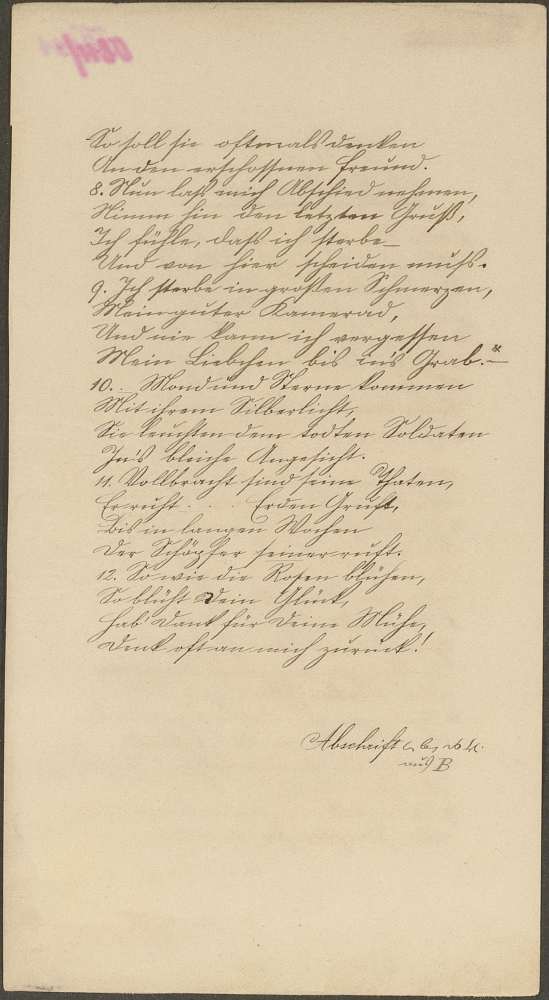 So soll sie oftmals denken
An den erschossnen Freund.
8. Nun laß mich Abschied nehmen,
Nimm hin den letzten Gruß,
Ich fühle, daß ich sterbe
Und von hier scheiden muß.
9. Ich sterbe in großen Schmerzen,
Mein guter Kamerad,
Und nie kann ich vergessen
Mein Liebchen bis ins Grab.
10. Mond und Sterne kommen
Mit ihrem Silberlicht,
Sie leuchten dem todten Soldaten
In's bleiche Angesicht.
11. Vollbracht sind seine Thaten,
Er ruht . . . Erden Gruft,
Bis in langen Wochen
Der Schöpfer seiner ruft.
12. So wie die Rosen blühen,
So blüht Dein Glück,
Hab' Dank für Deine Mühe,
Denk oft an mich zurück!
Abschrift
aus B